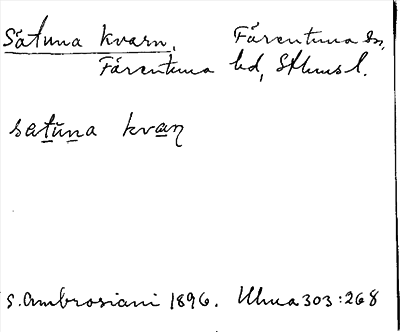 Såtuna kvarn, Färentuna sn,
Färentuna hd, Sthms l.
satuna kvaṇ
S. Ambrosiani 1896. Ulma 303:268